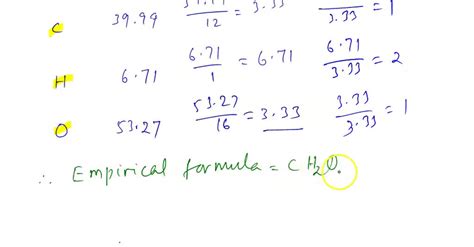 C 39.99 39.99/12 = 3.33 3.33 = 1
H 6.71 6.71/1 = 6.71 6.71/3.33 = 2
O 53.27 53.27/16 = 3.33 3.33/3.33 = 1
∴ Empirical formula = CH₂O.